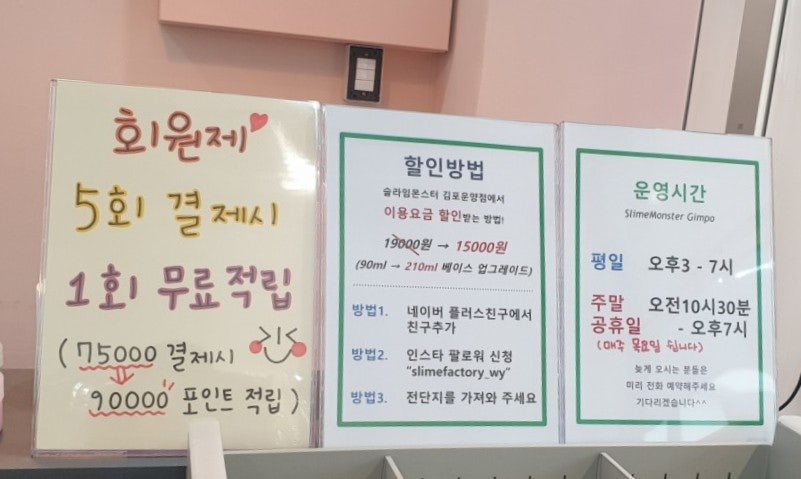 회원제
5회 결제시
1회 무료적립
(75000 결제시
90000 포인트 적립)
할인방법
슬라임몬스터 김포운양점에서
이용요금 할인받는 방법!
19000원 → 15000원
(90ml → 210ml 베이스 업그레이드)
방법1. 네이버 플러스친구에서
친구추가
방법2. 인스타 팔로워 신청
"slimefactory_wy"
방법3. 전단지를 가져와 주세요
운영시간
SlimeMonster Gimpo
평일 오후3 - 7시
주말 오전10시30분
공휴일 - 오후7시
(매주 목요일 쉽니다)
늦게 오시는 분들은
미리 전화 예약해주세요
기다리겠습니다^^